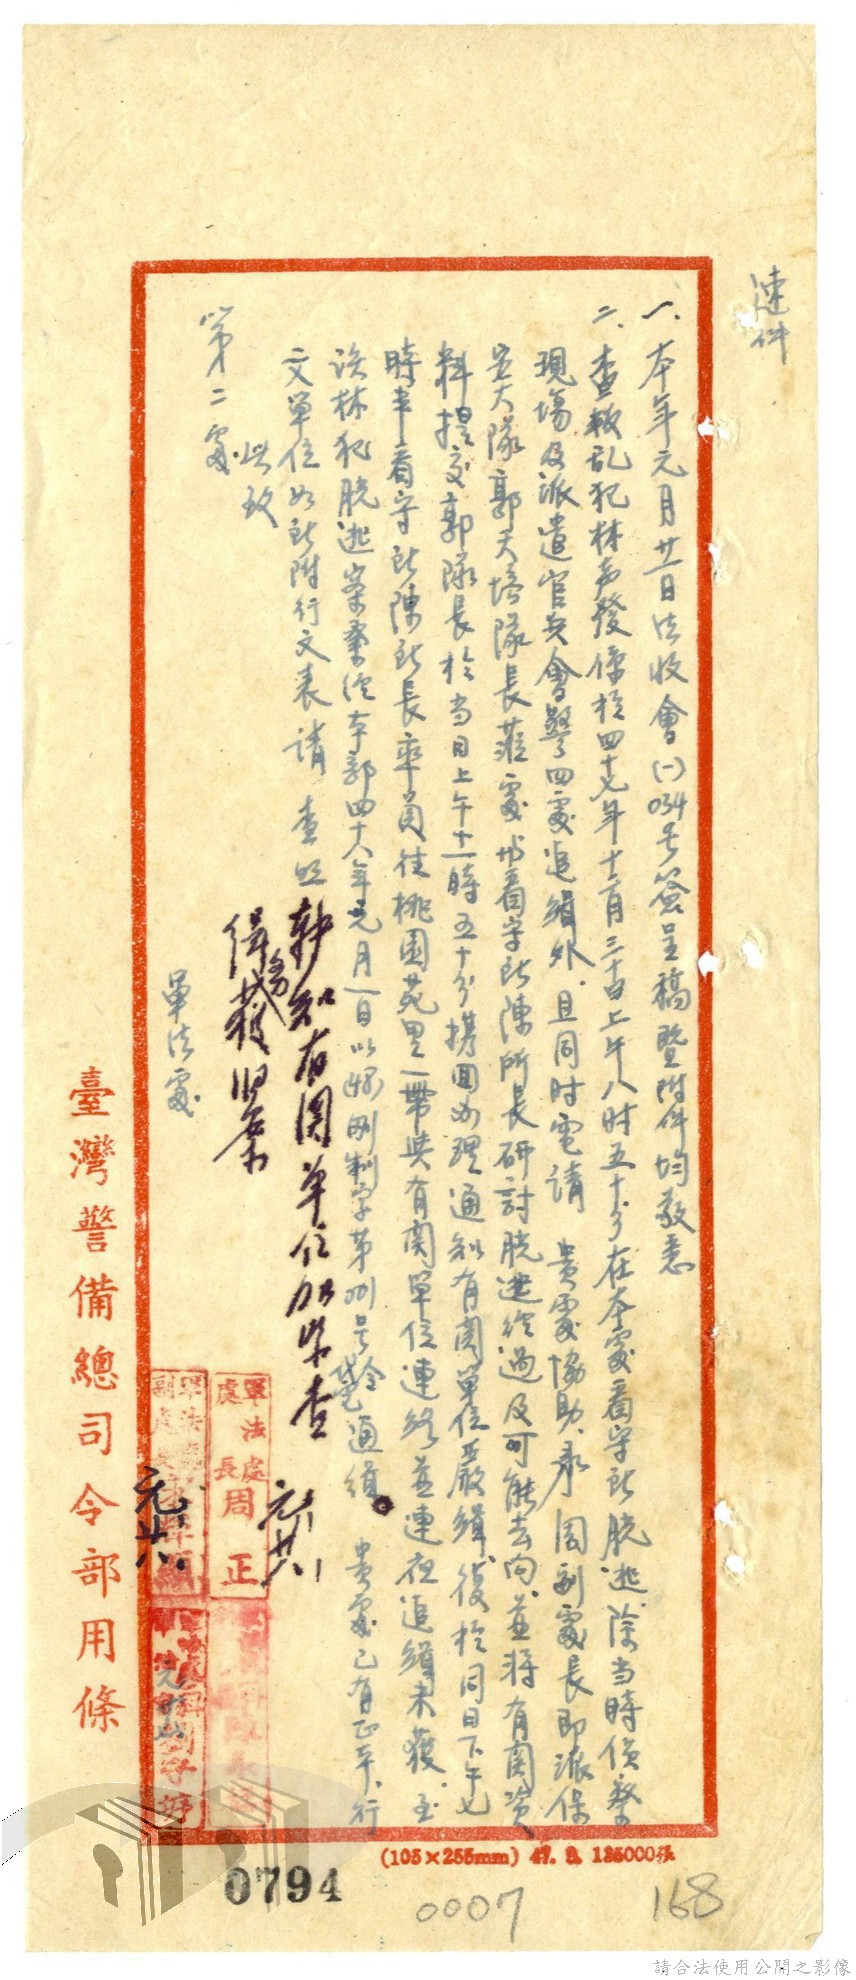 速件
一、本年元月廿一日法收會(一)034号簽呈稿暨附件均敬悉
二、查叛乱犯林声發係於四十七年十二月三十日上午八时五十分在本處看守所脱逃、除当時偵察
現場及派遣官兵會警四處追緝外、且同时電請 貴處協助、承 周副處長即派保
安大隊郭天培隊長蒞處协看守所陳所長研討脱逃经過及可能去向、並將有関資
料提交郭隊長於当日上午十一時五十分携回办理通知有関單位嚴緝、復於同日下午七
時半看守所陳所長率員往桃園苑里一帶與有関單位連絡並連夜追緝未獲、至
该林犯脱逃案業经本部四十八年元月一日以 字第 号令 通緝。貴處已有正本、行
文單位如所附行文表請 查照轉知有関單位加紧查
緝務獲归案
此致
第二處
軍法處
軍法處
處長周正
元廿八
元廿八
臺灣警備總司令部用條
(105×255mm) 47. 125000張
0794
0007
168
請合法使用公開之影像